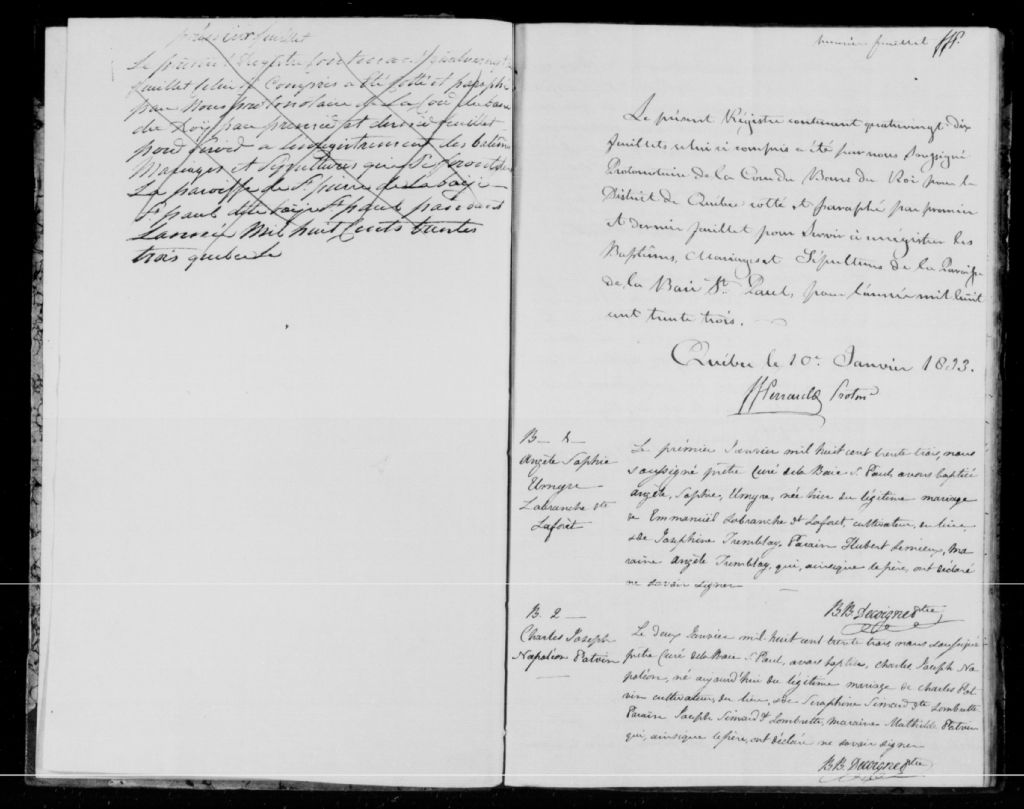 premier feuillet
Le présent Régistre contenant quatrevingt dix
feuillets celui ci compris a été cotté et paraphé
par nous protonotaire de la Cour du banc
du Roy par premier et dernier feuillet
pour servir a lenregistrement des batêmes
Mariages et Sépultures qui se feront dans
La paroisse de St pierre de la baye
St paul dite baye St paul pendant
Lannée Mil huit Cents trentes
trois quebec le
premier feuillet
Le présent Régistre contenant quatrevingt dix
feuillets celui ci compris a été par nous Soussigné
Protonotaire de la Cour du Banc du Roi pour le
District de Québec cotté et paraphé par premier
et dernier feuillet pour servir à enrégistrer les
Baptêmes, Mariages et Sépultures de la Paroisse
de la Baie St. Paul, pour l'année mil huit
cent trente trois.
Québec le 10e Janvier 1833.
Perrault Proton
B - 1 -
Angèle Sophie
Umyre
Labranche dte
Laforêt
Le prémier Janvier mil huit cent trente trois, nous
soussigné prêtre Curé de la Baie St. Paul, avons baptisé
Angèle, Sophie, Umyre, née hier du légitime mariage
de Emmanuël Labranche dt Laforêt, cultivateur, du lieu,
& de Josephine Tremblay. Parain Hubert Lemieux, Ma
raine Angèle Tremblay, qui, ainsique le père, ont déclaré
ne savoir signer
B.B. Decoigne Ptre
B. 2 -
Charles Joseph
Napoléon Potvin
Le deux Janvier mil huit cent trente trois nous soussigné
prêtre Curé de la Baie St. Paul, avons baptisé, Charles Joseph Na
poléon, né aujourd'hui du légitime mariage de Charles Pot
vin cultivateur, du lieu, & de Séraphine Simard dte Lombrette
Parain Joseph Simard dt Lombrette, maraine Mathilde Potvin
qui, ainsique le père, ont déclaré ne savoir signer
B.B. Decoigne Ptre